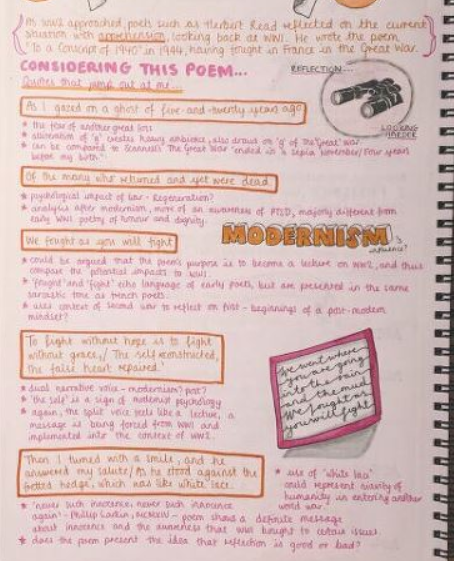 As WW2 approached, poets such as Herbert Read reflected on the current
situation with apprehension, looking back at WW1. He wrote the poem
'To a Conscript of 1940' in 1944, having fought in France in the Great War.
CONSIDERING THIS POEM...
Quotes that jump out at me...
REFLECTION...
LOOKING
HARDER
As I gazed on a ghost of five-and-twenty years ago
* the fear of another great loss
* alliteration of 'g' creates heavy ambience, also draws on 'g' of the 'Great' war
* can be compared to Scannell's The Great War 'ended in a sepia November/Four years
before my birth.'
Of the many who returned and yet were dead
* psychological impact of war - Regeneration?
* analysis after modernism, more of an awareness of PTSD, majorly different from
early WW1 poetry of honour and dignity.
We fought as you will fight
MODERNISM
influence?
* could be argued that the poem's purpose is to become a lecture on WW2, and thus
compare the potential impacts to WW1.
* 'fought' and 'fight' echo language of early poets, but are presented in the same
sarcastic tone as trench poets.
* uses context of second war to reflect on first - beginnings of a post-modern
mindset?
To fight without hope is to fight
without grace,/ The self reconstructed,
the false heart repaired.'
* dual narrative voice - modernism? post?
* 'the self' is a sign of modernist psychology
* again, the split voice feels like a lecture, a
message is being forced from WW1 and
implemented into the context of WW2.
We went where
you are going
into the rain
and the mud
We fought as
you will fight
Then I turned with a smile, and he
answered my salute/ As he stood against the
fretted hedge, which was like white lace.
* use of 'white lace'
could represent naivety of
humanity in entering another
world war.
* 'never such innocence, never such innocence
again' - Phillip Larkin, MCMXIV - poem shows a definite message
about innocence and the awareness that war brought to certain issues
* does the poem present the idea that reflection is good or bad?